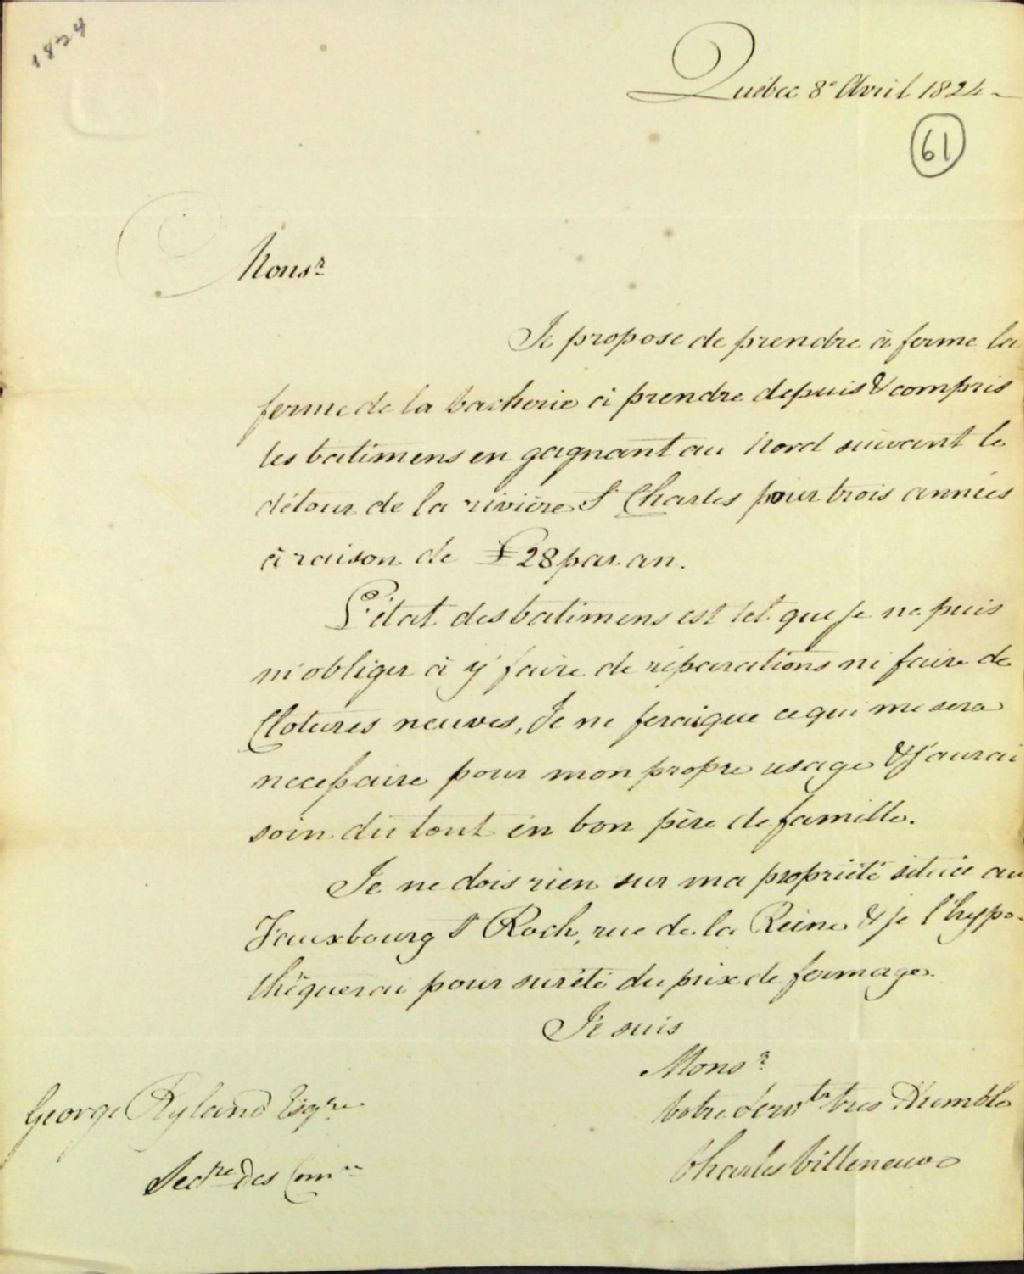 1824
Québec 8e Avril 1824
61
Monsr
Je propose de prendre à ferme la
ferme de la Vacherie à prendre depuis & compris
les batimens en gagnant au Nord suivant le
détour de la rivière St Charles pour trois années
à raison de £28 par an.
L'état des batimens est tel que je ne puis
m'obliger à y faire de réparations ni faire de
Clotures neuves, Je ne ferai que ce qui me sera
necessaire pour mon propre usage & j'aurai
soin du tout en bon père de famille.
Je ne dois rien sur ma propriété située au
Fauxbourg St Roch, rue de la Reine & je l'hypo-
théquerai pour sureté du prix de fermage.
Je suis
Monsr
Votre Servtr tres Humble
Charles Villeneuve
George Ryland Esqre
Secre des Comrs